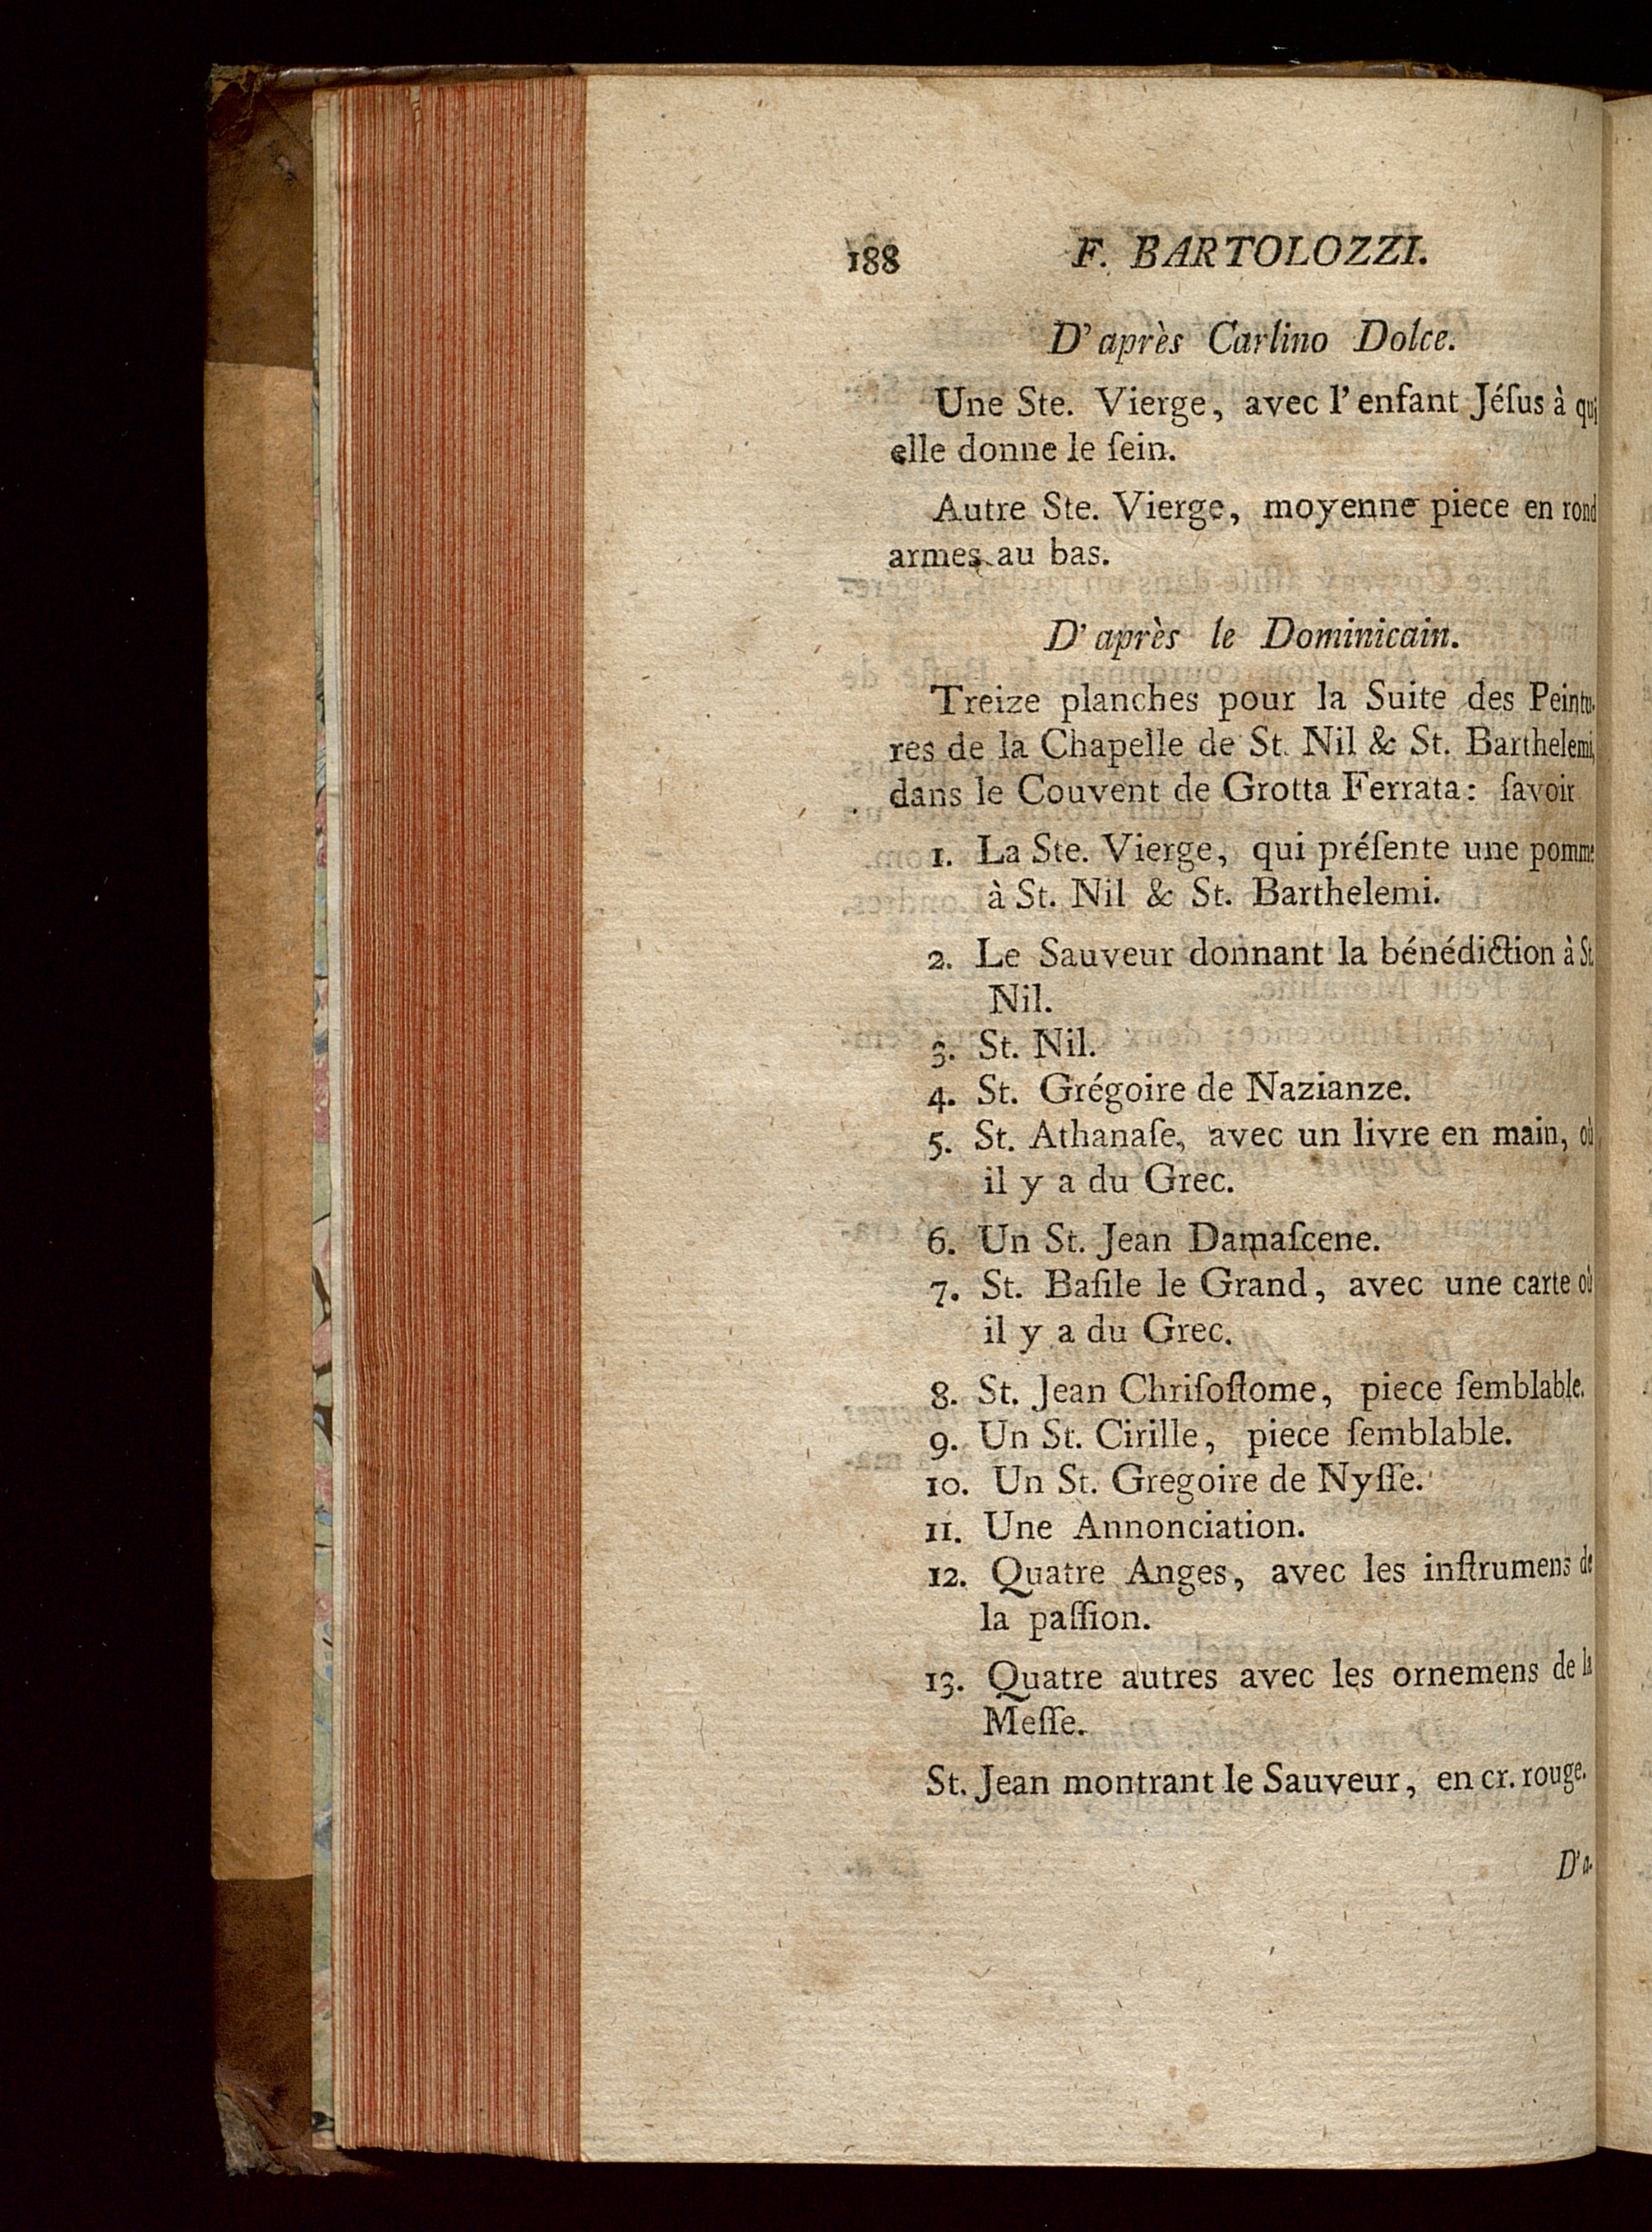 188 F. BARTOLOZZI.
D'après Carlino Dolce.
Une Ste. Vierge, avec l'enfant Jéſus à qui
elle donne le ſein.
Autre Ste. Vierge, moyenne piece en rond
armes au bas.
D'après le Dominicain.
Treize planches pour la Suite des Peintu-
res de la Chapelle de St. Nil & St. Barthelemi,
dans le Couvent de Grotta Ferrata: ſavoir
1. La Ste. Vierge, qui préſente une pomme
à St. Nil & St. Barthelemi.
2. Le Sauveur donnant la bénédiction à St.
Nil.
3. St. Nil.
4. St. Grégoire de Nazianze.
5. St. Athanaſe, avec un livre en main, où
il y a du Grec.
6. Un St. Jean Damaſcene.
7. St. Baſile le Grand, avec une carte où
il y a du Grec.
8. St. Jean Chriſoſtome, piece ſemblable.
9. Un St. Cirille, piece ſemblable.
10. Un St. Gregoire de Nyſſe.
11. Une Annonciation.
12. Quatre Anges, avec les inſtrumens de
la paſſion.
13. Quatre autres avec les ornemens de la
Meſſe.
St. Jean montrant le Sauveur, en cr. rouge.
D'a-